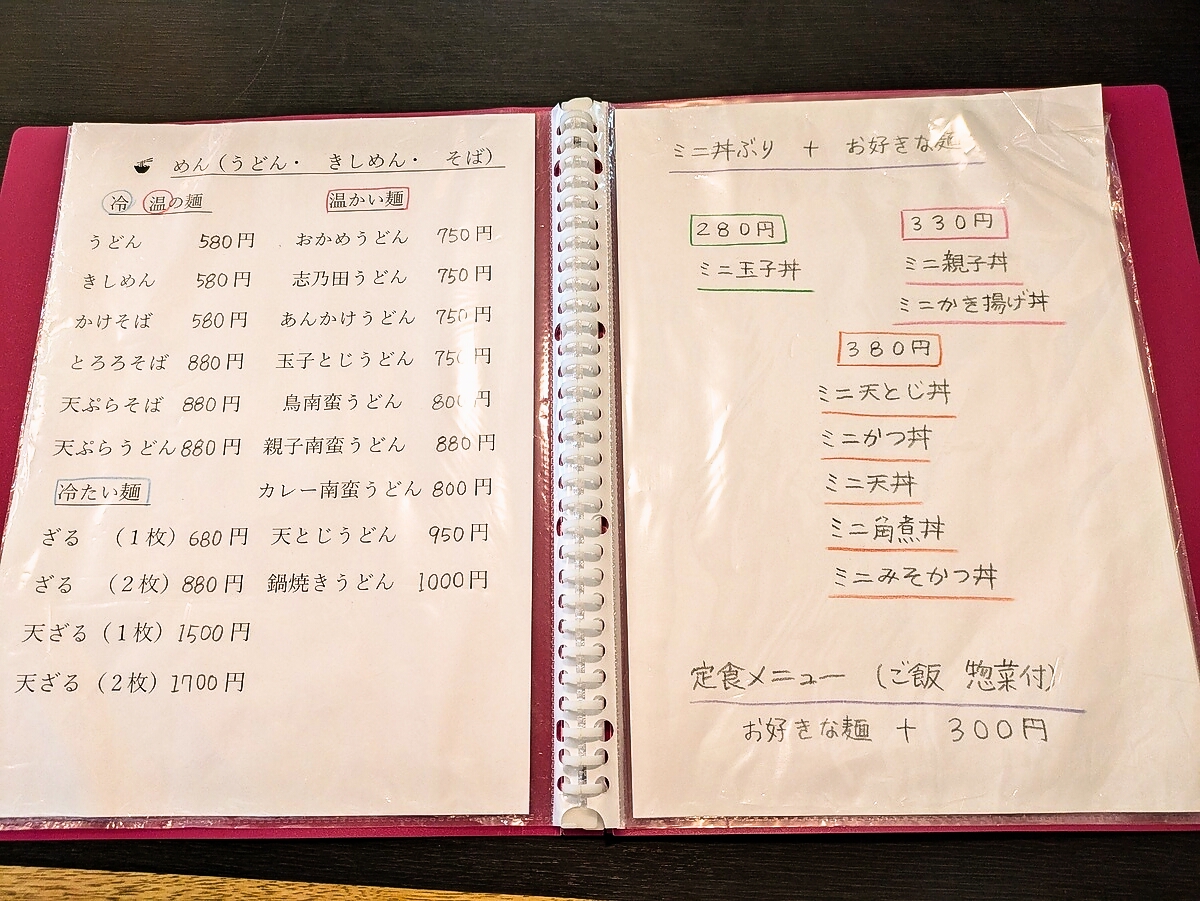 めん(うどん・ きしめん・ そば)
冷 温の麺
うどん 580円
きしめん 580円
かけそば 580円
とろろそば 880円
天ぷらそば 880円
天ぷらうどん 880円
冷たい麺
ざる (1枚) 680円
ざる (2枚) 880円
天ざる (1枚) 1500円
天ざる (2枚) 1700円
温かい麺
おかめうどん 750円
志乃田うどん 750円
あんかけうどん 750円
玉子とじうどん 750円
鳥南蛮うどん 800円
親子南蛮うどん 880円
カレー南蛮うどん 800円
天とじうどん 950円
鍋焼きうどん 1000円
ミニ丼ぶり + お好きな麺
280円
ミニ玉子丼
330円
ミニ親子丼
ミニかき揚げ丼
380円
ミニ天とじ丼
ミニかつ丼
ミニ天丼
ミニ角煮丼
ミニみそかつ丼
定食メニュー (ご飯 惣菜付)
お好きな麺 + 300円